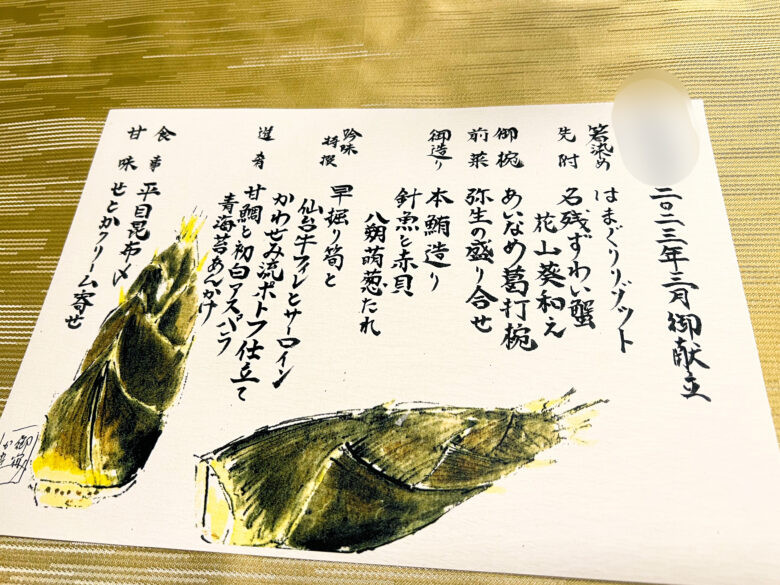 二〇二三年三月御献立
箸染め はまぐりリゾット
先附 名残ずわい蟹
花山葵和え
御椀 あいなめ葛打椀
前菜 弥生の盛り合せ
御造り 本鮪造り
針魚と赤貝
八朔蒟葱だれ
珍味
特撰 早掘り筍と
仙台牛フィレとサーロイン
かわせみ流ポトフ仕立て
進肴 甘鯛と初白アスパラ
青海苔あんかけ
食事 平目昆布〆
甘味 せとかクリーム寄せ